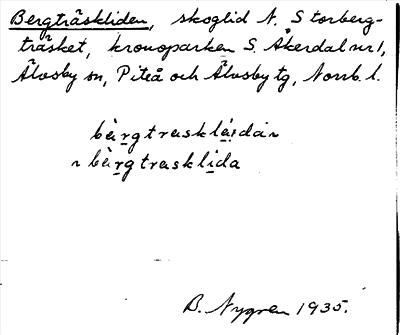 Bergträskliden, skoglid N. Storberg-
träsket, kronoparken S. Åkerdal nr 1,
Älvsby sn, Piteå och Älvsby tg, Norrb. l.
bàrgtrasklái̯dan
~ bàrgtrasklida
B. Nygren 1935.